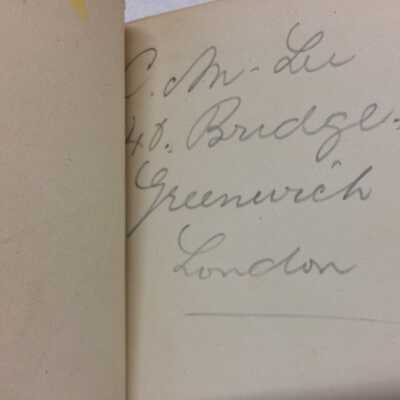 C. M. Lee
40. Bridge-
Greenwich
London